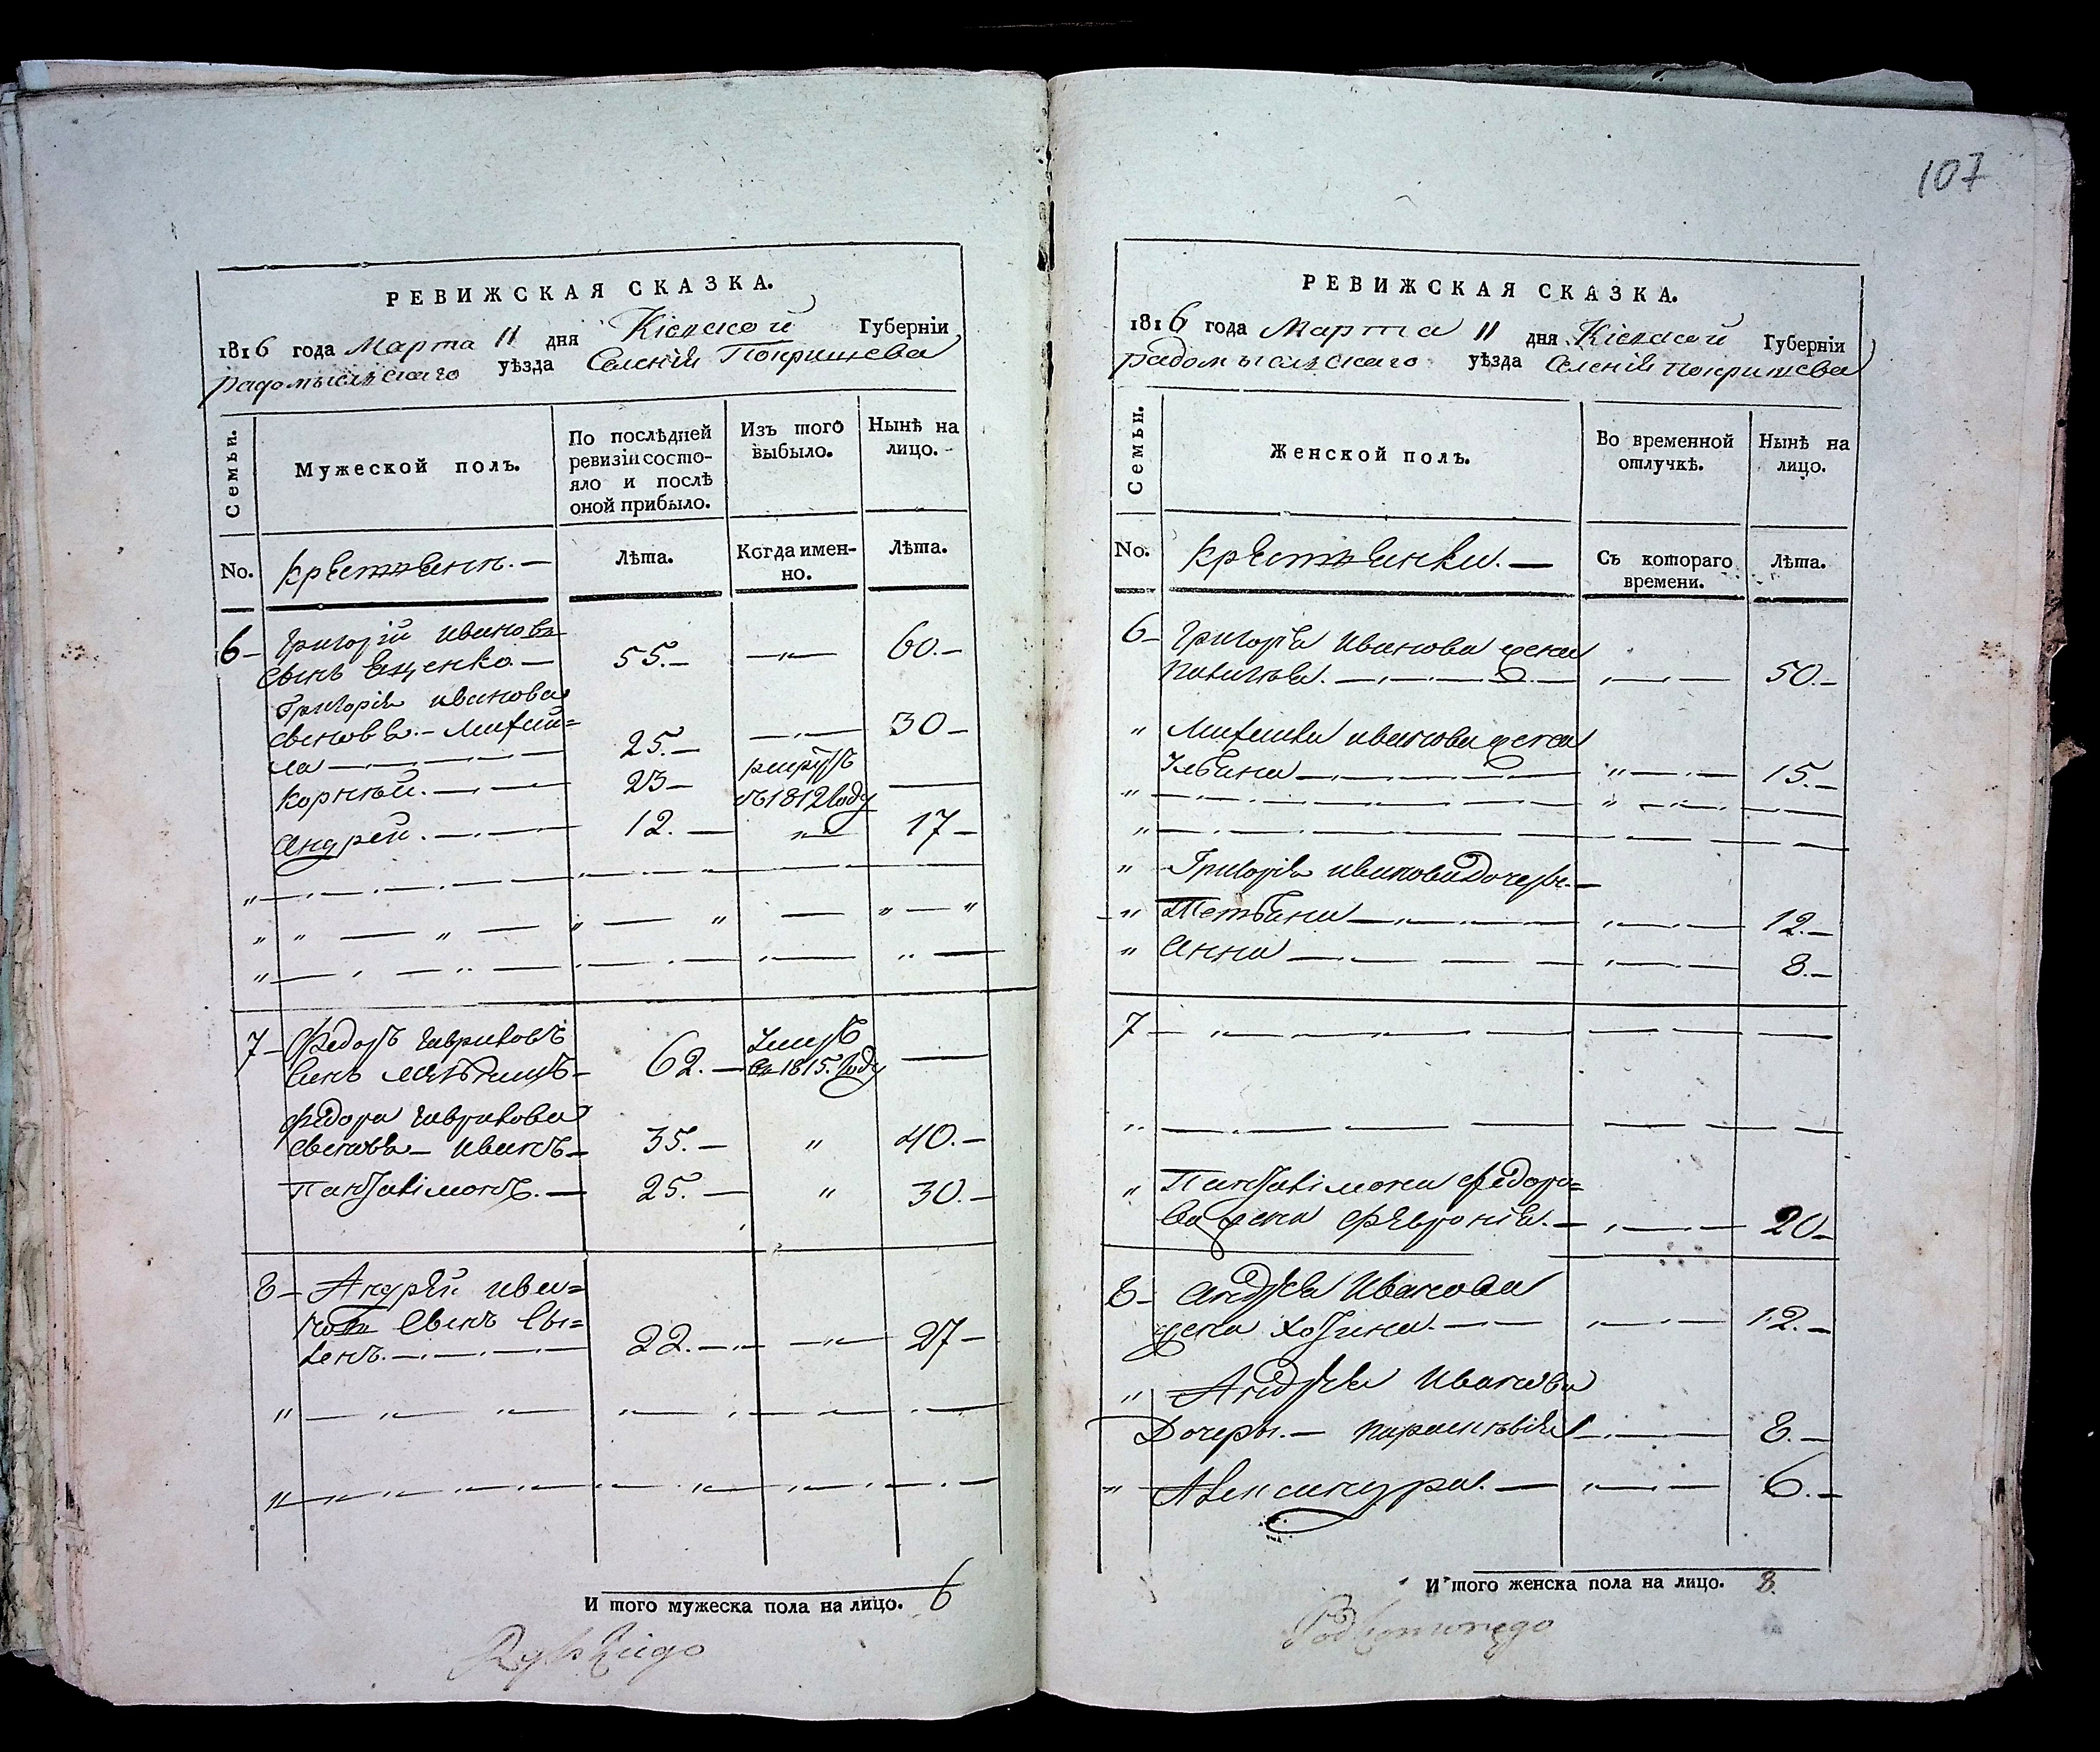 107
РЕВИЖСКАЯ СКАЗКА.
1816 года Марта 11 дня Кіевской Губерніи
Радомысльскаго уѣзда Селенія Покришева
Семьи.
Мужеской полъ.
По послѣдней ревизіи состояло и послѣ оной прибыло.
Изъ того выбыло.
Нынѣ на лицо.
No.
крестьянъ.
Лѣта.
Когда именно.
Лѣта.
6 Григорій Ивановъ
сынъ Яценко. 55. 60.
Григорія Иванова
сыновья. Михай=
ла 25. 30
Корнѣй. 23
въ 1812 году
Андрей. 12. 17
7 Федоръ Гавриловъ
сынъ 62. умеръ въ 1815. году
Федора Гаврилова
сыновья Иванъ 35. 40.
Пантелімонъ. 25. 30.
8 Андрей Ива=
новъ сынъ
22. 27
И того мужеска пола на лицо. 6
РЕВИЖСКАЯ СКАЗКА.
1816 года Марта 11 дня Кіевской Губерніи
Радомысльскаго уѣзда Селенія Покришева
Семьи.
Женской полъ.
Во временной отлучкѣ.
Нынѣ на лицо.
No.
крестьянки.
Съ котораго времени.
Лѣта.
6 Григорія Иванова жена
50.
Михайли Иванова жена
Ульяна 15.
Григорія Иванова дочеры.
Тетьяна 12.
Анна 8.
7
Пантелімона Федоро=
ва жена Февронія. 20
8 Андрея Иванова
жена 12.
Андрея Иванова
Дочеры. Параскевія 8.
Александра. 6.
И того женска пола на лицо. 8.